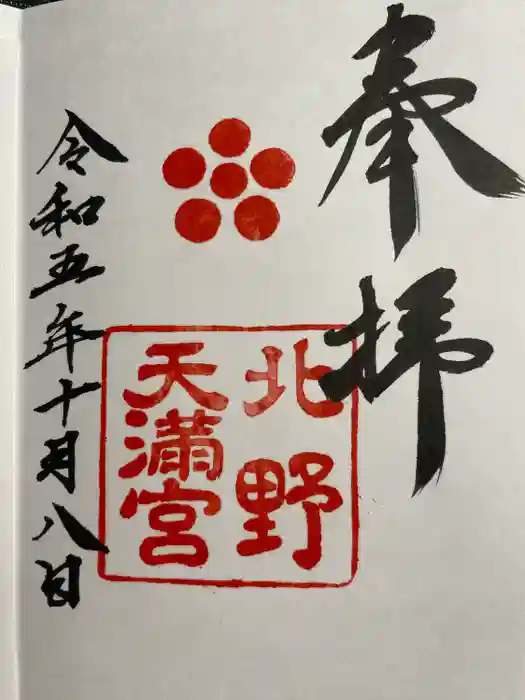 奉拝
北野
天満宮
令和五年十月八日